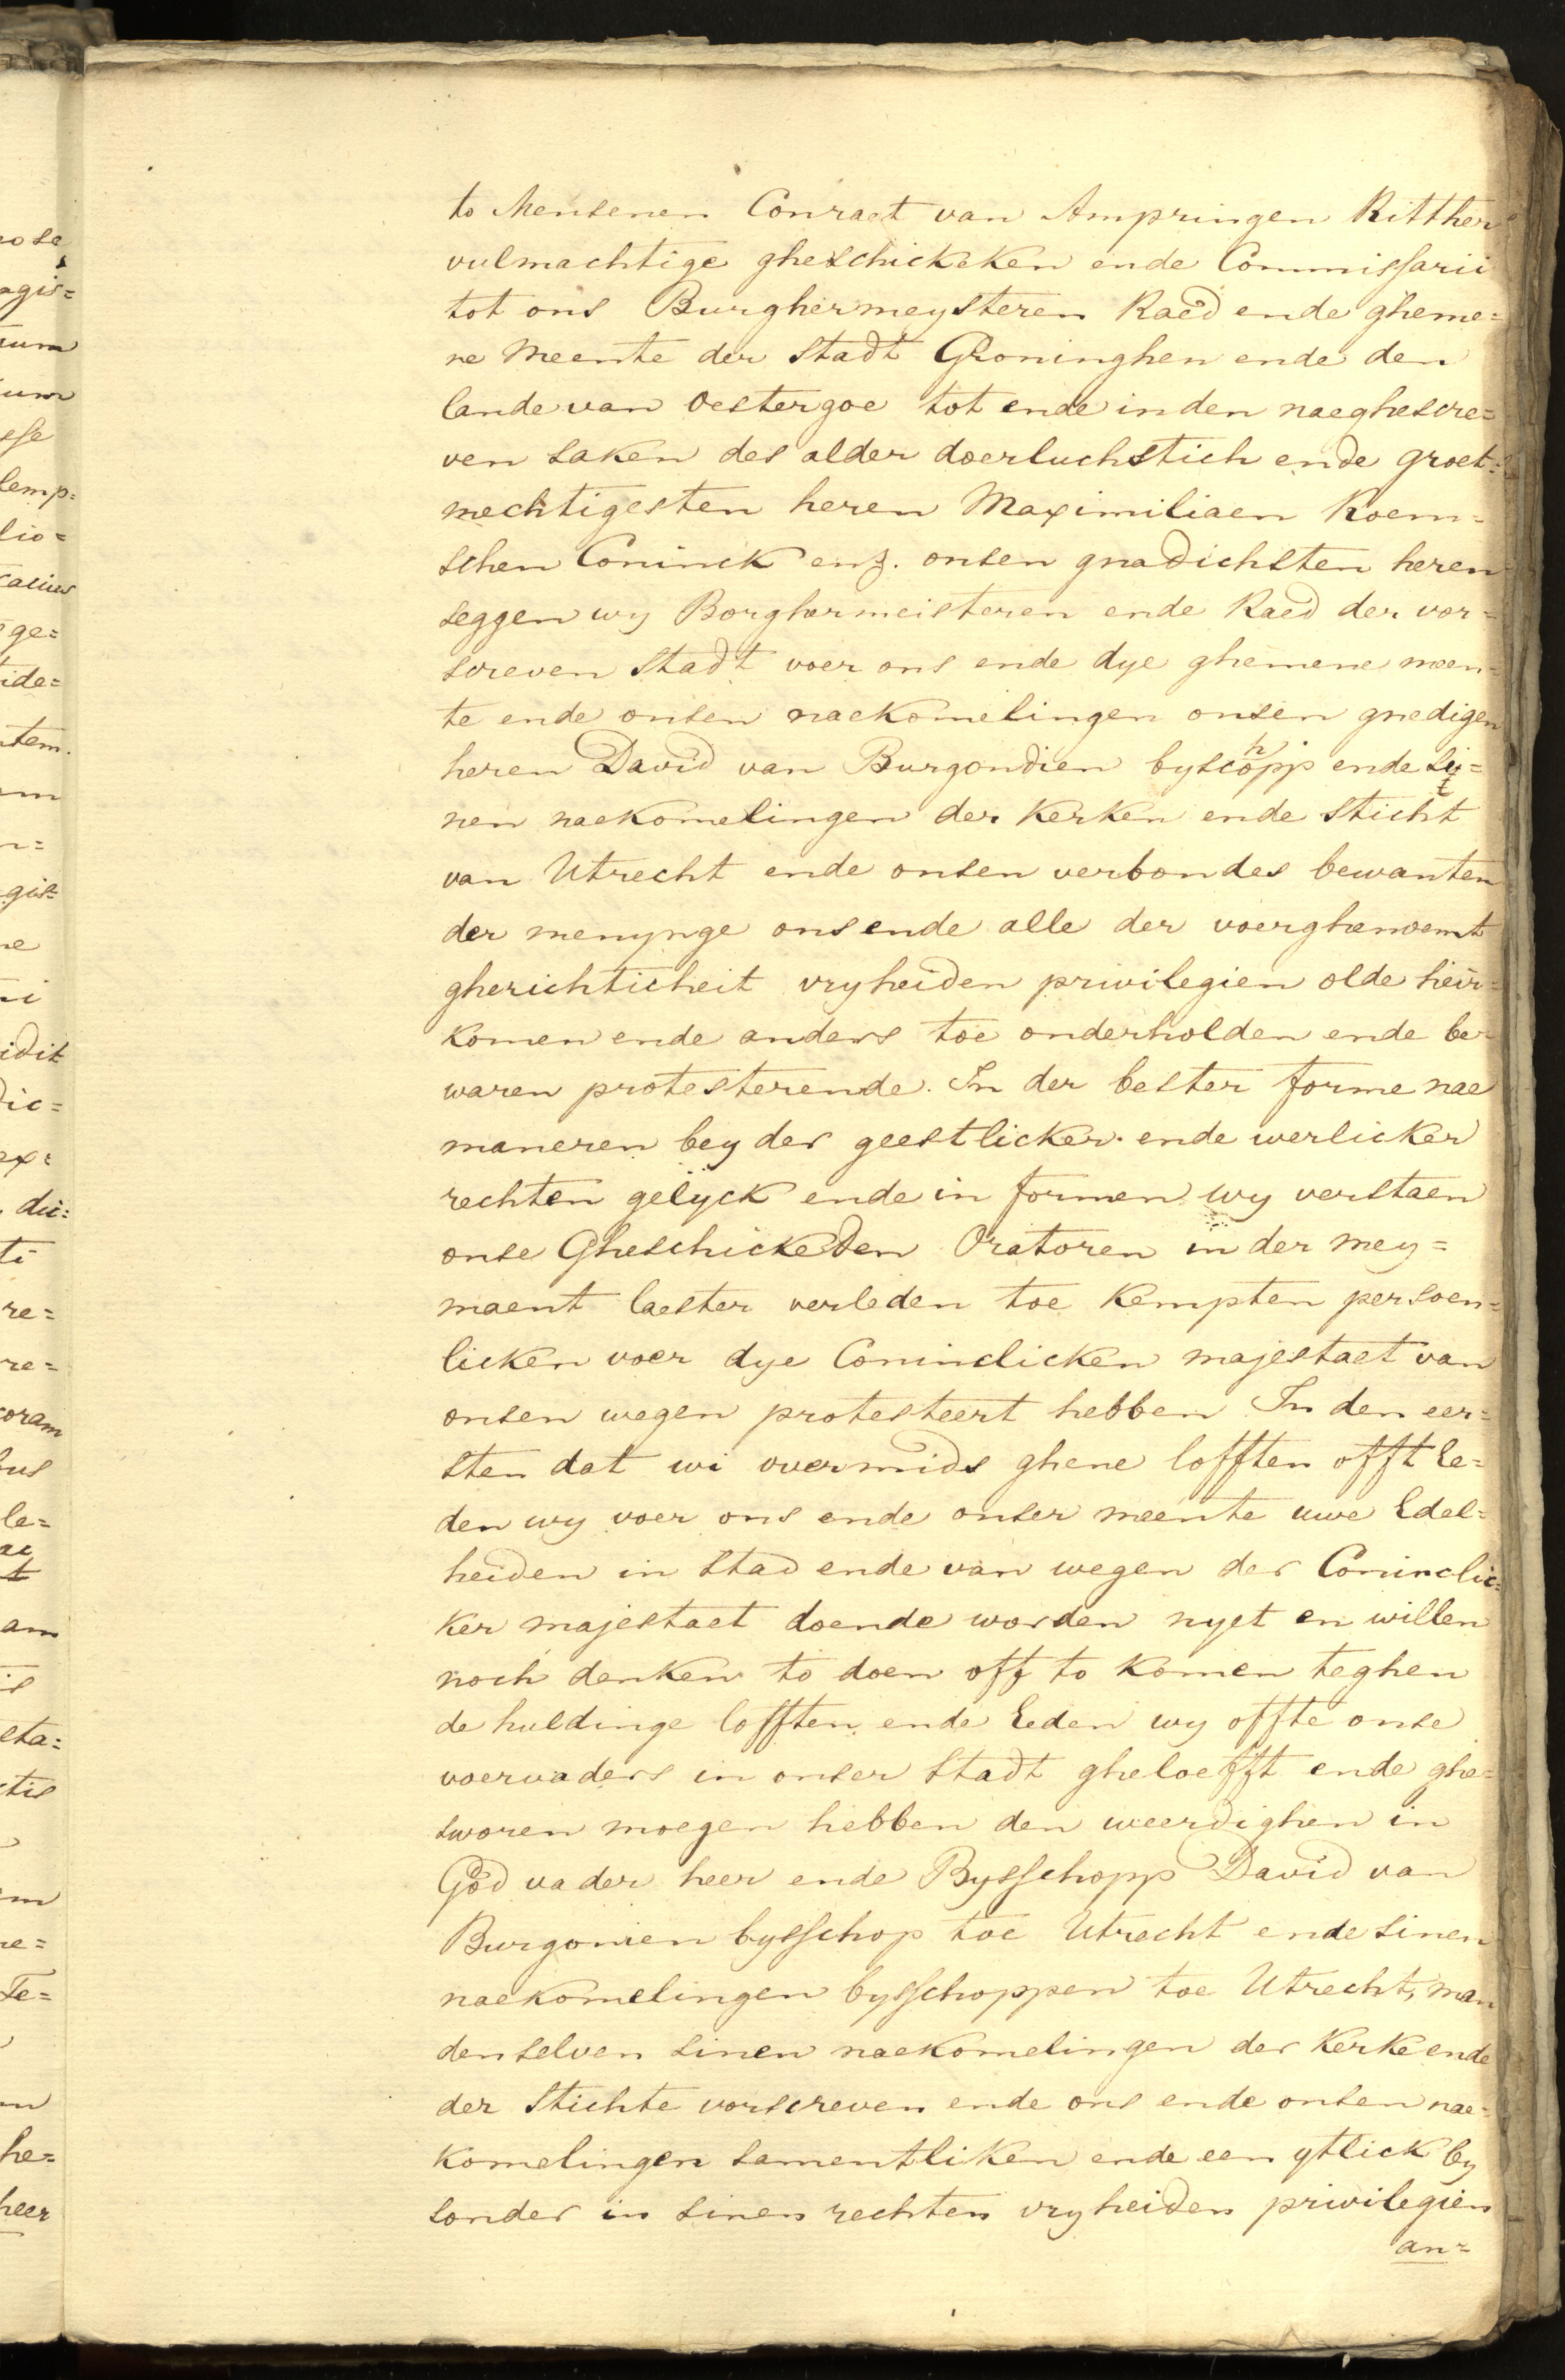 to Mensenen Conraet van Ampringen Ritther
vulmachtige gheschickeken ende Commissarii
tot ons Burghermeysteren Raed ende gheme=
ne Meente der Stadt Groninghen ende den
lande van Oestergoe tot ende in den naeghescre=
ven saken des alder doerluchstich ende groet=
mechtigesten heren Maximiliaen Roem=
schen Coninck enz. onsen gnadichsten heren
seggen wy Borghermeisteren ende Raed der vor=
screven Stadt voer ons ende dye ghemene meen=
te ende onsen naekomelingen onsen gnedigen
heren David van Burgondien byschopp ende sy=
nen naekomelingen der Kerken ende Sticht
van Utrecht ende onsen verbondes bewanten
der menynge ons ende alle der voerghenoemt
gherichticheit vryheiden privilegien olde heir=
komen ende anders toe onderholden ende be=
waren protesterende. In der bester forme nae
maneren beyder geestlicker ende werlicker
rechten gelyck ende in formen wy verstaen
onse Gheschickeden Oratoren in der mey=
maent laester verleden toe Kempten persoen=
licken voer dye Coninclicken majestaet van
onsen wegen protesteert hebben In den eer=
sten dat wi overmids ghene lofften offt Ee=
den wy voer ons ende onser meente uwe Edel=
heiden in stad ende van wegen der Coninclic=
ker majestaet doende worden nyet en willen
noch denken to doen off to komen teghen
de huldinge lofften ende Eeden wy offte onse
voervaders in onser Stadt gheloefft ende ghe=
sworen moegen hebben den weerdighen in
God vader heer ende Bysschopp David van
Burgonien bysschop toe Utrecht ende sinen
naekomelingen bysschoppen toe Utrecht, man
denselven sinen naekomelingen der Kerke ende
der Stichte vorscreven ende ons ende onsen nae=
komelingen samentliken ende een ytlick by
sonder in sinen rechten vryheiden privilegien
an=